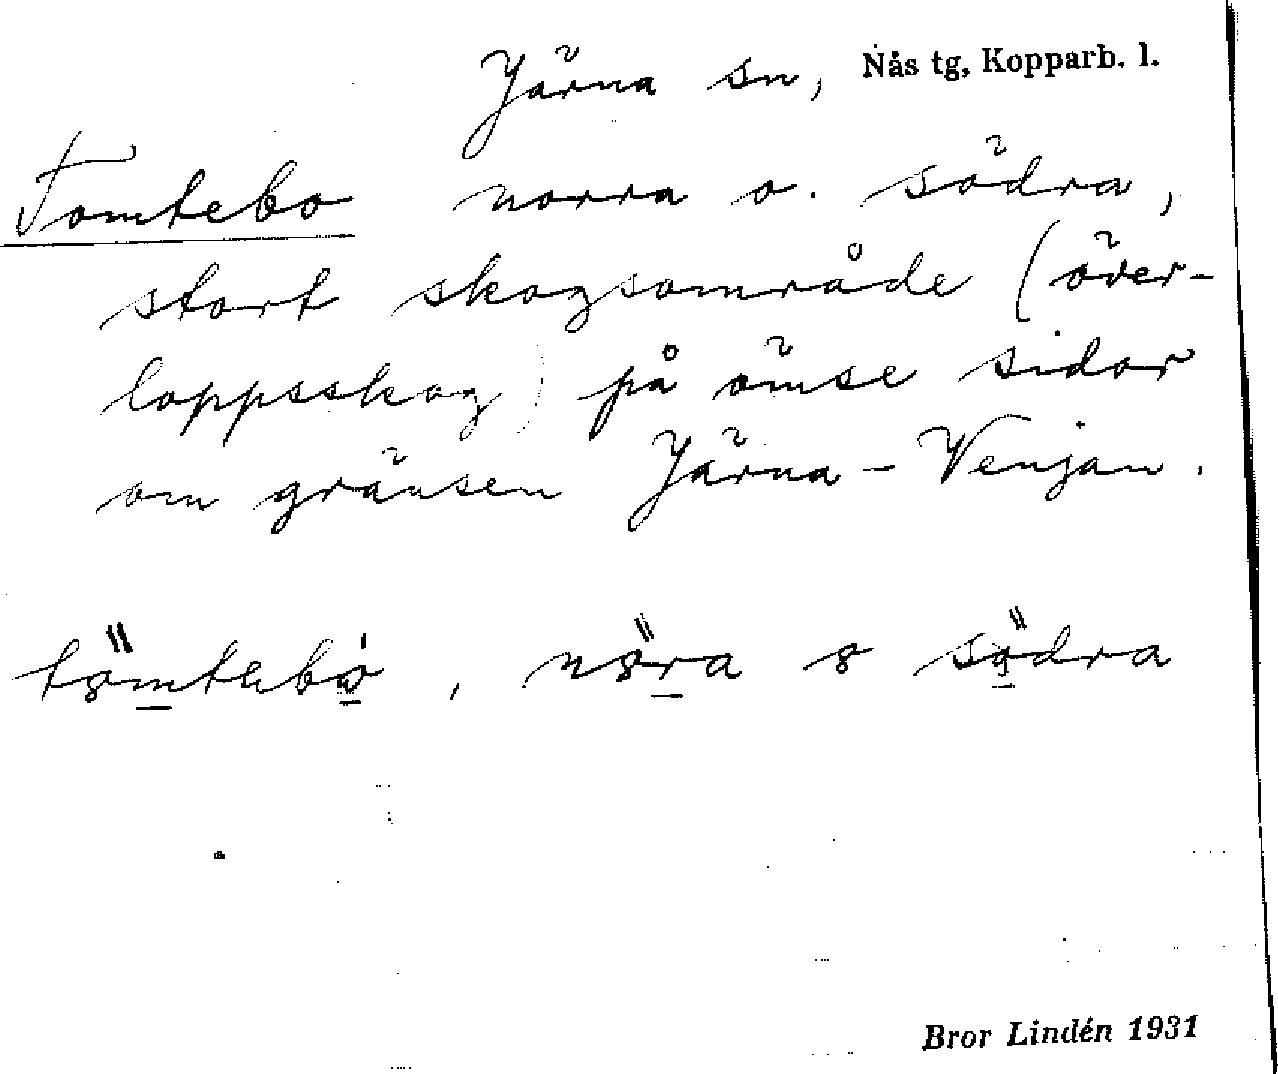 Järna sn, Nås tg, Kopparb. l.
Tomtebo norra o. södra,
stort skogsområde (över-
loppsskog) på ömse sidor
om gränsen Järna - Venjan.
, nöra s södra
Bror Lindén 1931